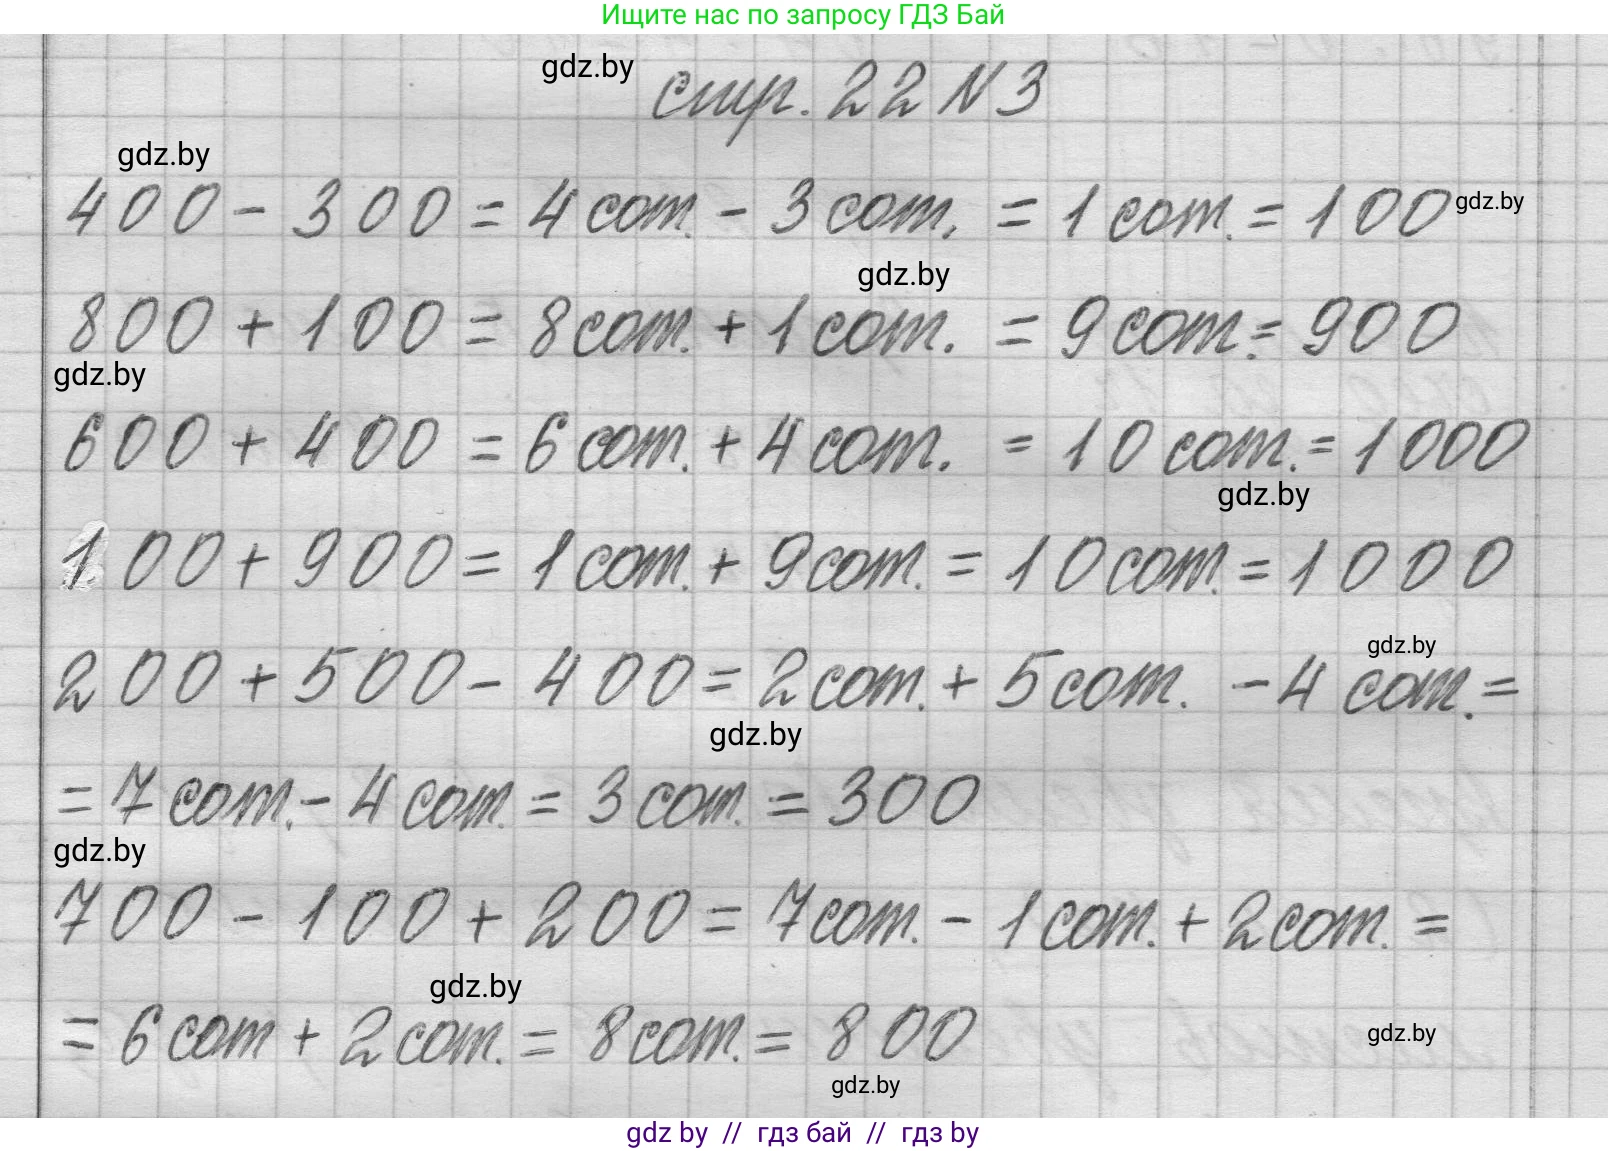 Ищите нас по запросу ГДЗ Бай
gdz.by
стр. 22 N 3
gdz.by
400 - 300 = 4 сот. - 3 сот. = 1 сот. = 100
gdz.by
gdz.by
800 + 100 = 8 сот. + 1 сот. = 9 сот. = 900
gdz.by
600 + 400 = 6 сот. + 4 сот. = 10 сот. = 1000
gdz.by
100 + 900 = 1 сот. + 9 сот. = 10 сот. = 1000
gdz.by
200 + 500 - 400 = 2 сот. + 5 сот. - 4 сот. =
gdz.by
= 7 сот. - 4 сот. = 3 сот. = 300
gdz.by
700 - 100 + 200 = 7 сот. - 1 сот. + 2 сот. =
gdz.by
= 6 сот + 2 сот. = 8 сот. = 800
gdz.by
gdz.by
gdz by // гдз бай // гдз by